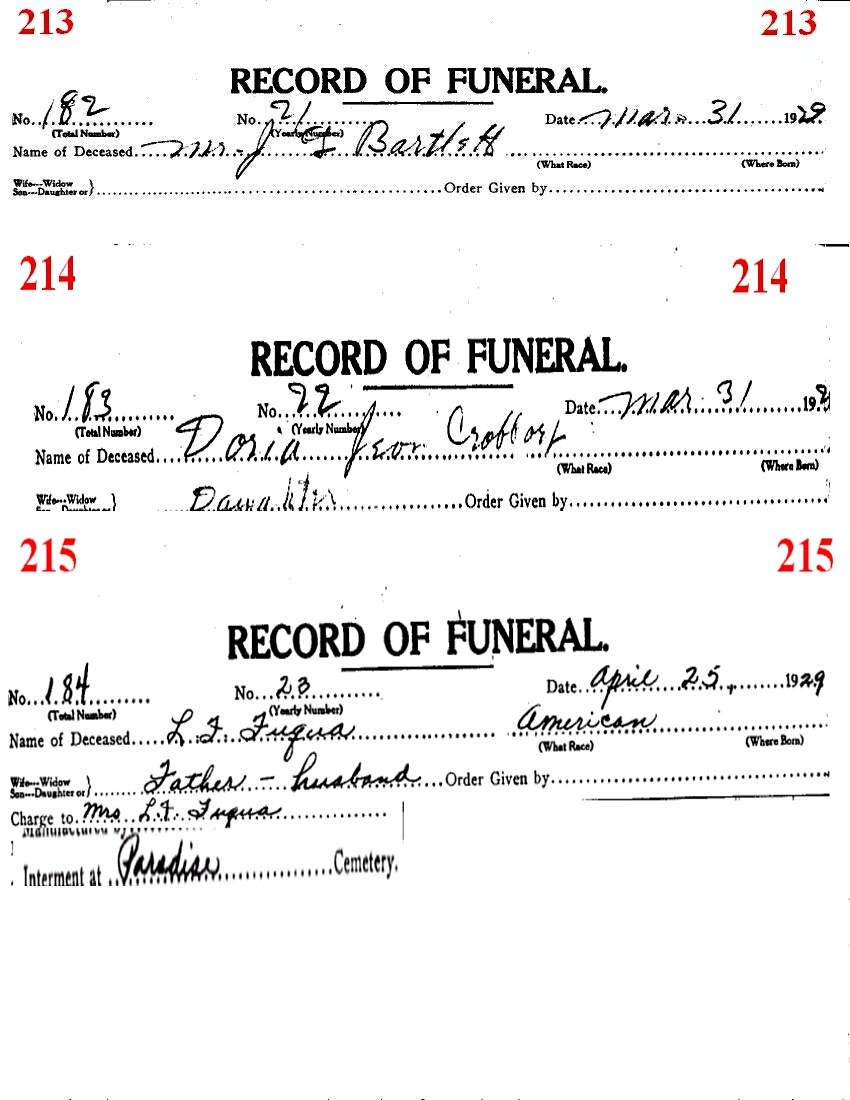 213 213
RECORD OF FUNERAL.
No. 182 No. 21 Date Mar. 31 1929
(Total Number) (Yearly Number)
Name of Deceased Mr. J Bartlett (What Race) (Where Born)
Wife---Widow
Son---Daughter or} Order Given by
214 214
RECORD OF FUNERAL.
No. 183 No. 22 Date Mar. 31 192
(Total Number) (Yearly Number)
Name of Deceased Doria Jean (What Race) (Where Born)
Wife---Widow } Daughter Order Given by
215 215
RECORD OF FUNERAL.
No. 184 No. 23 Date April 25, 1929
(Total Number) (Yearly Number)
Name of Deceased L. F. Fuqua American
(What Race) (Where Born)
Wife---Widow
Son---Daughter or} Father - husband Order Given by
Charge to Mrs. L. F. Fuqua
Interment at Paradise Cemetery.